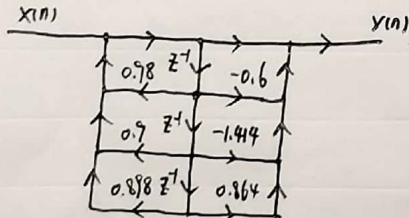 X(n) Y(n)
0.98 Z⁻¹ -0.6
0.9 Z⁻¹ -1.414
0.898 Z⁻¹ 0.864